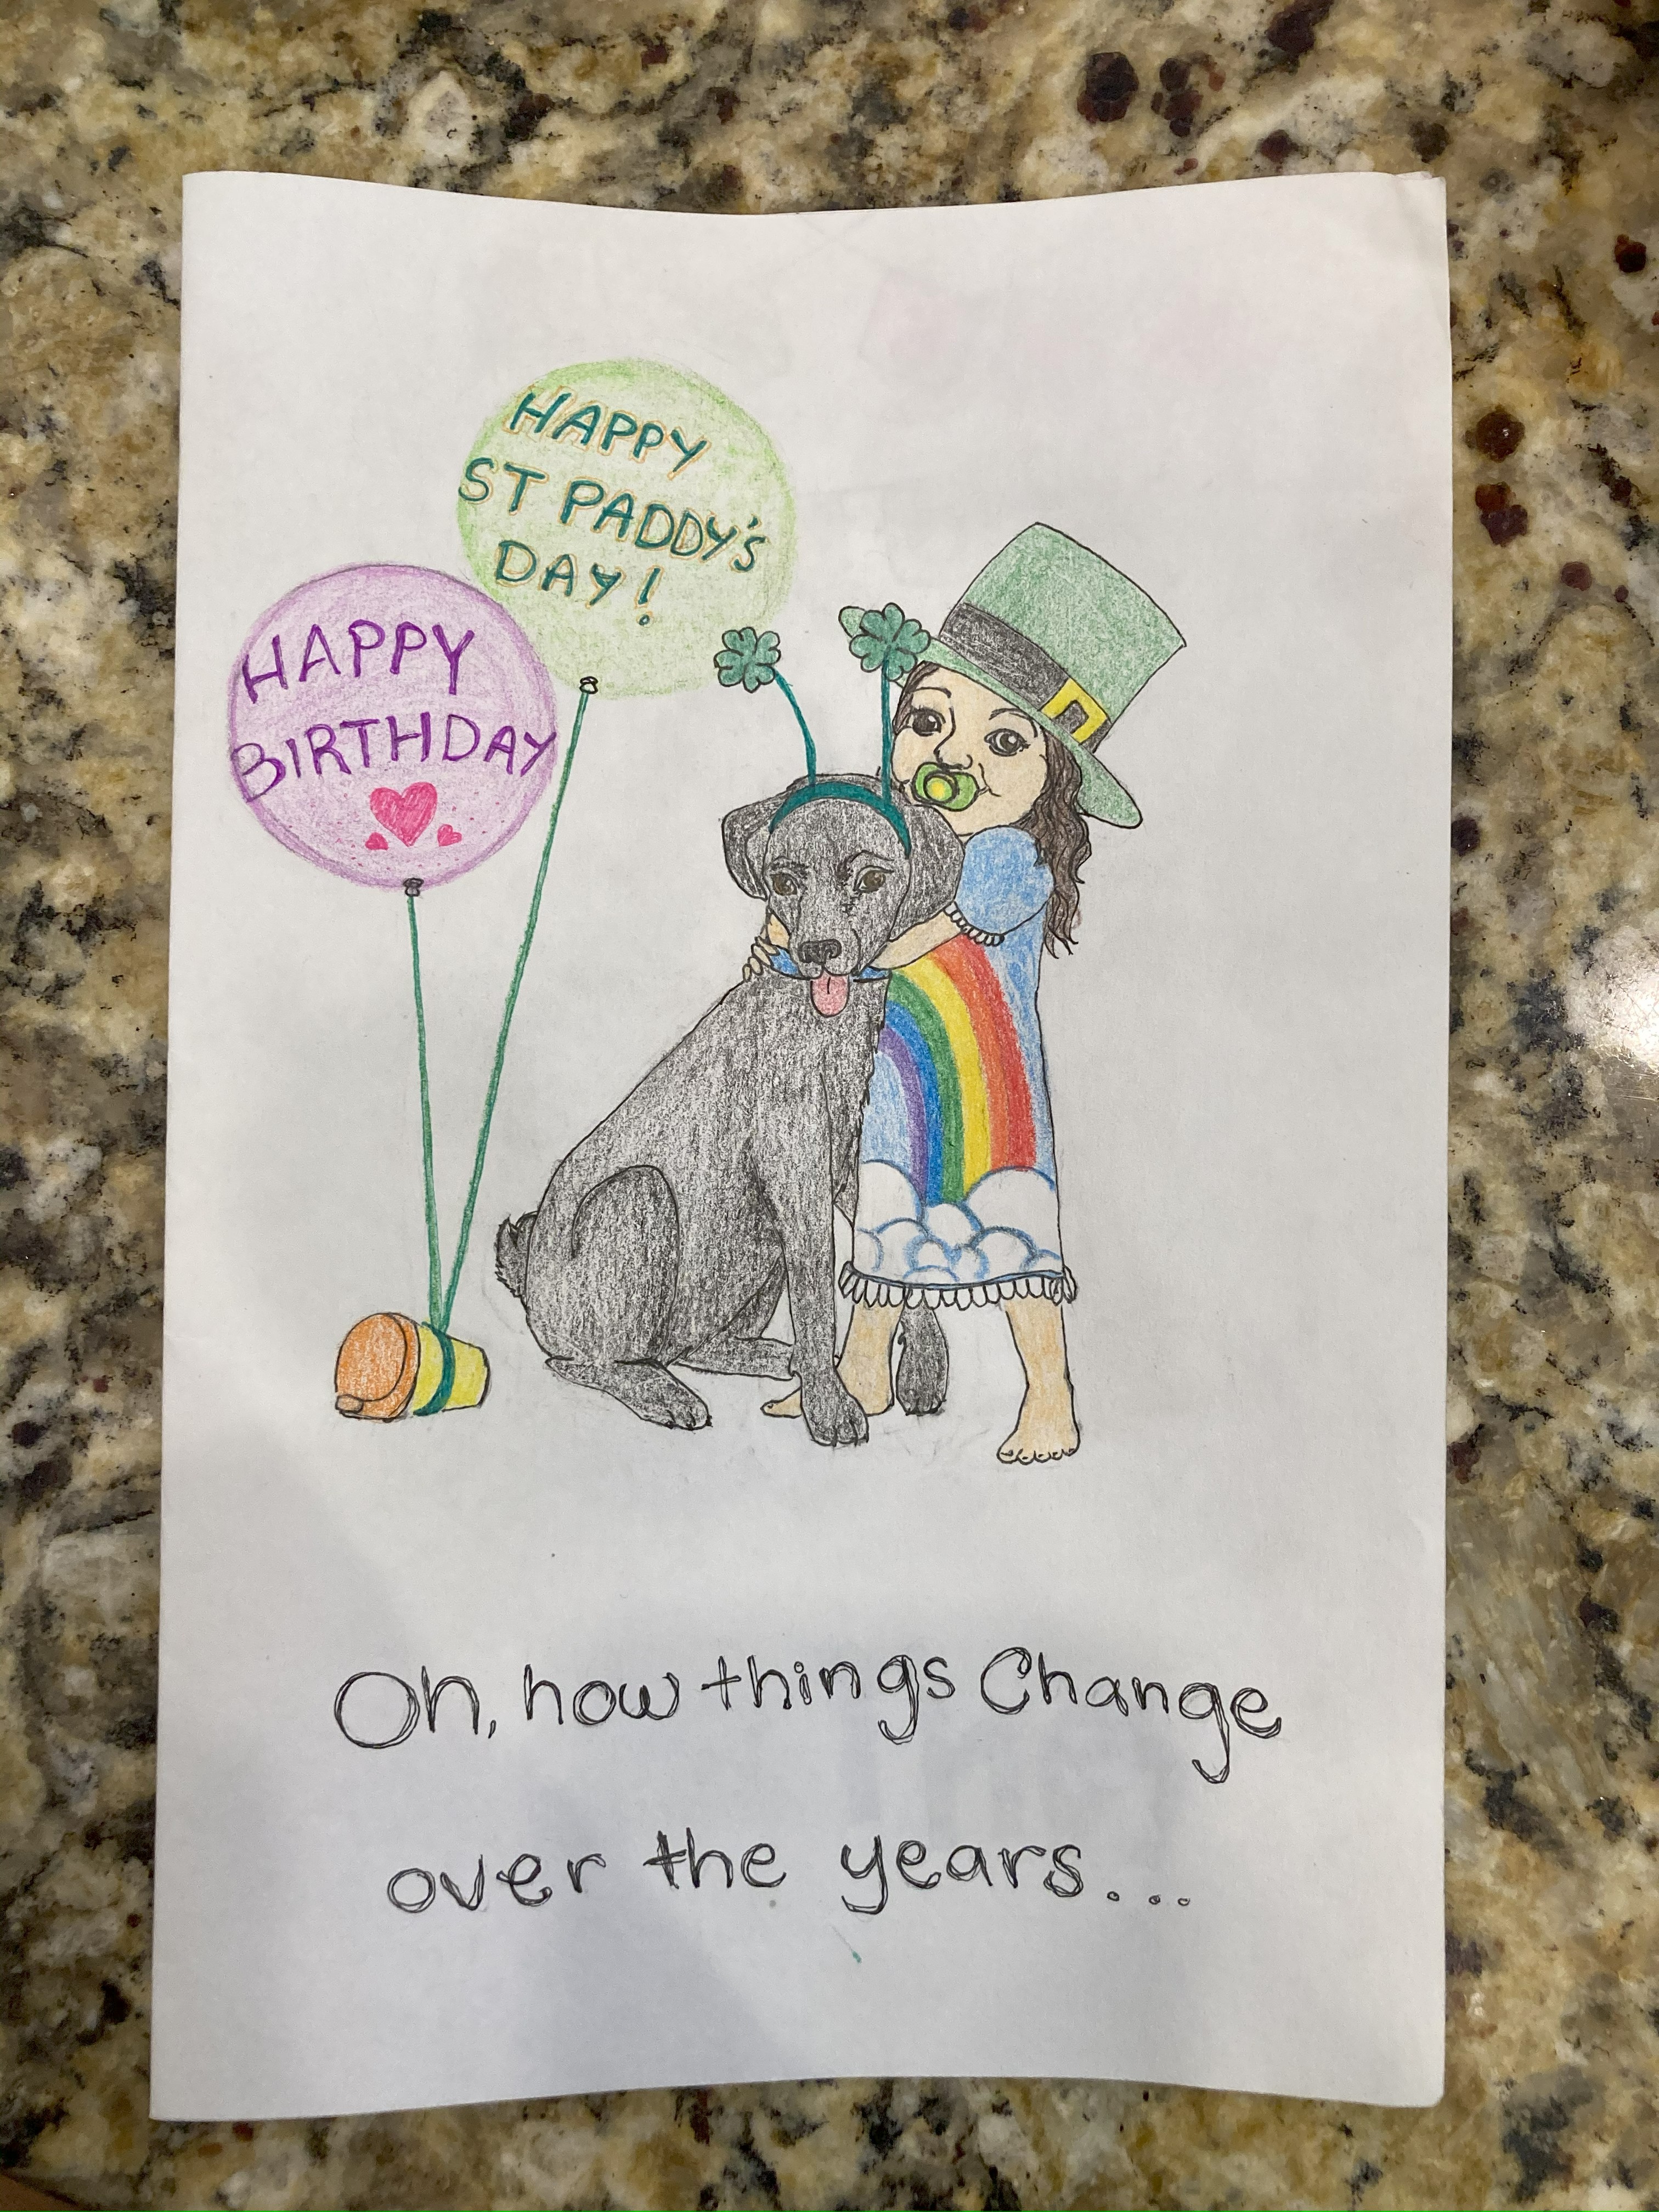 HAPPY
ST PADDY'S
DAY!
HAPPY
BIRTHDAY
Oh, how things Change
over the years...